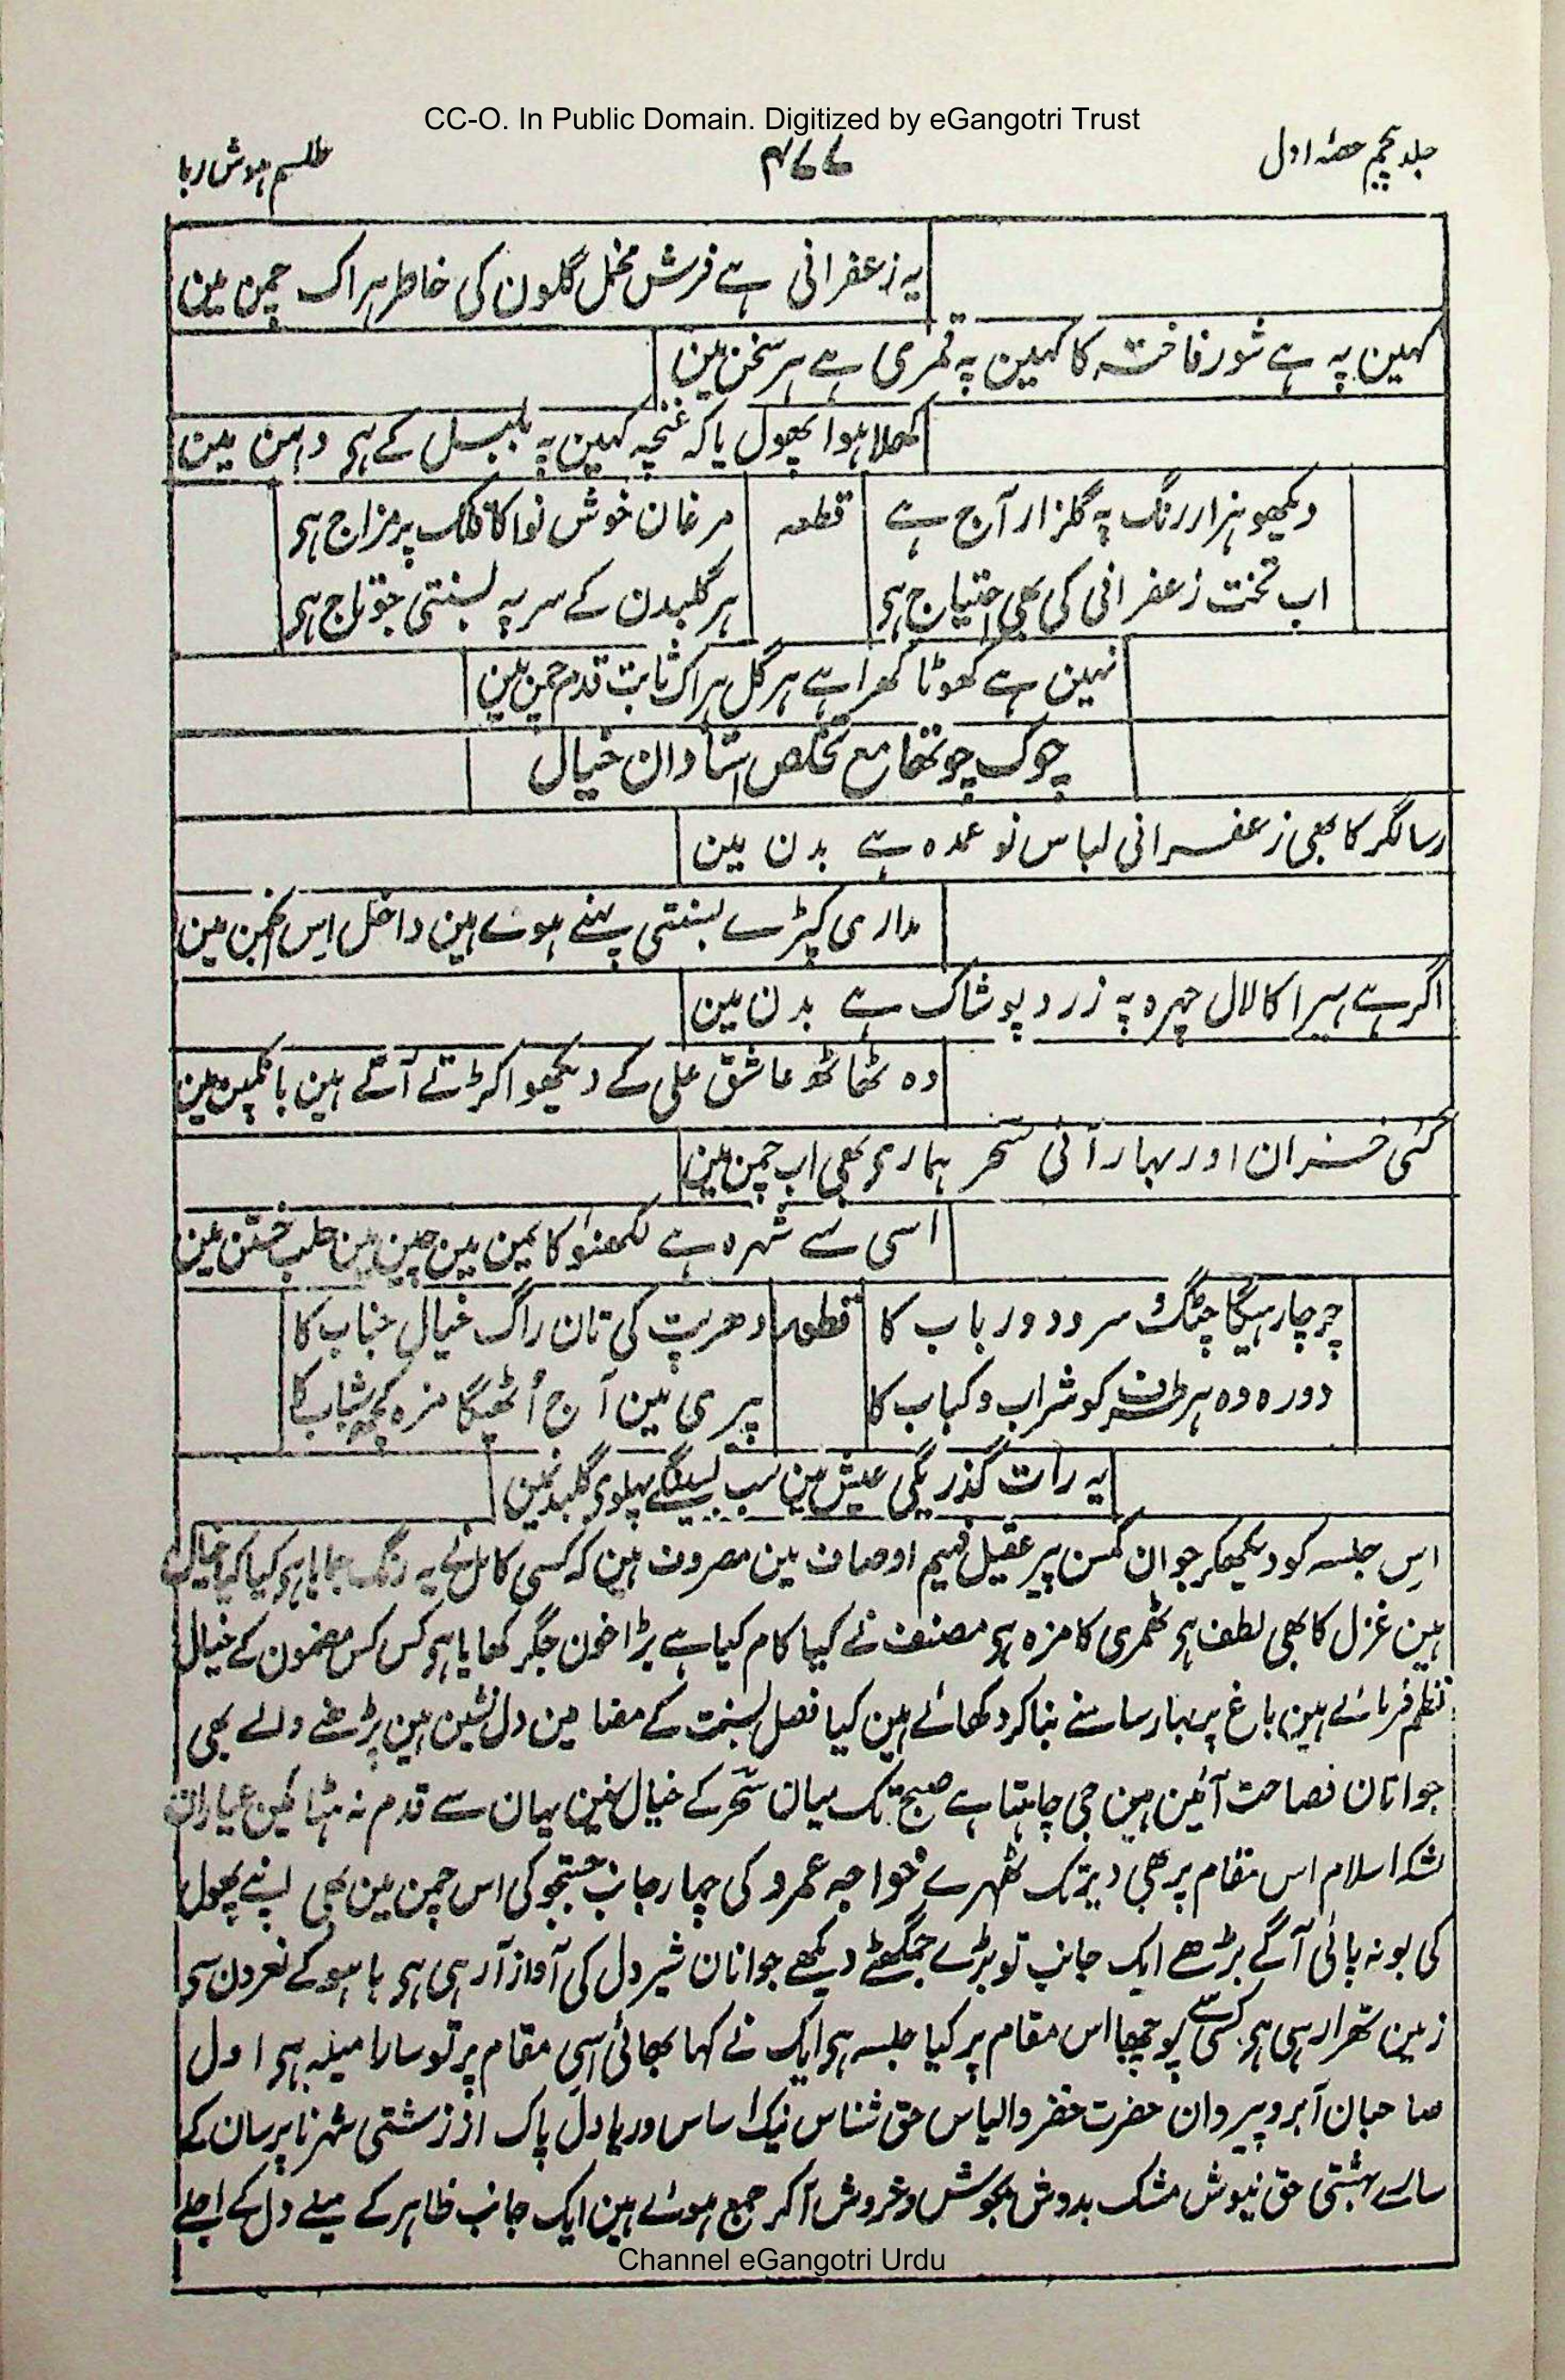 CC-O. In Public Domain. Digitized by eGangotri Trust
جلد پنجم حصہ اول
۴۷۷
طلسم ہوش ربا
یہ زعفرانی ہے فرش مخمل گلون کی خاطر ہر اک چمن مین
کہین پہ ہے شور فاختہ کا کہین پہ قمری ہے ہر سخن مین
کھلا ہوا پھول یا کہ غنچہ کہین پہ بلبل کے ہی دہن مین
دیکھو ہزار رنگ پہ گلزار آج ہے
قطعہ
مرغان خوش نوا کا فلک پر مزاج ہی
اب تخت زعفرانی کی بھی احتیاج ہی
ہر گلبدن کے سر پہ بسنتی جو تاج ہی
نہین ہے کھوٹا کھرا ہے ہر گل ہر اک ثابت قدم چمن مین
چوک چوتھا مع تخلص استادان خیال
رسالگر کا بھی زعفرانی لباس نو عمدہ ہے بدن مین
مداری کپڑے بسنتی پہنے ہوے ہین داخل اس انجمن مین
اگر ہے ہیرا کا لال چہرہ پہ زرد پوشاک ہے بدن مین
وہ ٹھاٹھ عاشق علی کے دیکھو اکڑتے آتے ہین بانکپن مین
گئی خزان اور بہار آئی سحر ہماری بھی اب چمن مین
اسی سے شہرہ ہے لکھنؤ کا یمن مین چین مین حلب ختن مین
چرچا رہیگا چنگ و سرود و رباب کا
قطعہ
دھرپت کی تان راگ خیال جناب کا
دورہ وہ ہر طرف کو شراب و کباب کا
پیری مین آج اُٹھیگا مزہ کچھ شباب کا
یہ رات گذریگی عیش مین سب بسینگے پہلوی گلبدنمین
اس جلسہ کو دیکھکر جوان کمسن پیر عقیل فہیم اوصاف مین مصروف ہین کہ کسی کامل نے یہ رنگ جمایا ہی کیا کیا خیال
ہین غزل کا بھی لطف ہی ٹھمری کا مزہ ہی مصنف نے کیا کام کیا ہے بڑا خون جگر کھایا ہی کس کس مضمون کے خیال
نظم فرمائے ہین باغ پر بہار سامنے بنا کر دکھائے ہین کیا فصل بسنت کے مضامین دل نشین ہین پڑھنے والے بھی
جوانان فصاحت آئین ہین جی چاہتا ہے صبح تک میان سحر کے خیال سنین یہان سے قدم نہ ہٹائین عیاران
لشکر اسلام اس مقام پر بھی دیر تک ٹھہرے خواجہ عمرو کی چہار جانب جستجو کی اس چمن مین بھی اپنے پھول
کی بو نہ پائی آگے بڑھے ایک جانب تو بڑے جمگھٹے دیکھے جوانان شیر دل کی آواز آ رہی ہی ہا ہو کے نعرون سی
زمین تھرا رہی ہی کسی سے پوچھا اس مقام پر کیا جلسہ ہی ایک نے کہا بھائی اسی مقام پر تو سارا میلہ ہی اول
صاحبان آبرو پیروان حضرت خضر و الیاس حق شناس نیک اساس دریا دل پاک از زشتی شہر ناپرسان کے
سارے بہشتی حق نیوش مشک بدوش بجوش و خروش آ کر جمع ہوے ہین ایک جانب ظاہر کے میلے دل کے اجلے
Channel eGangotri Urdu